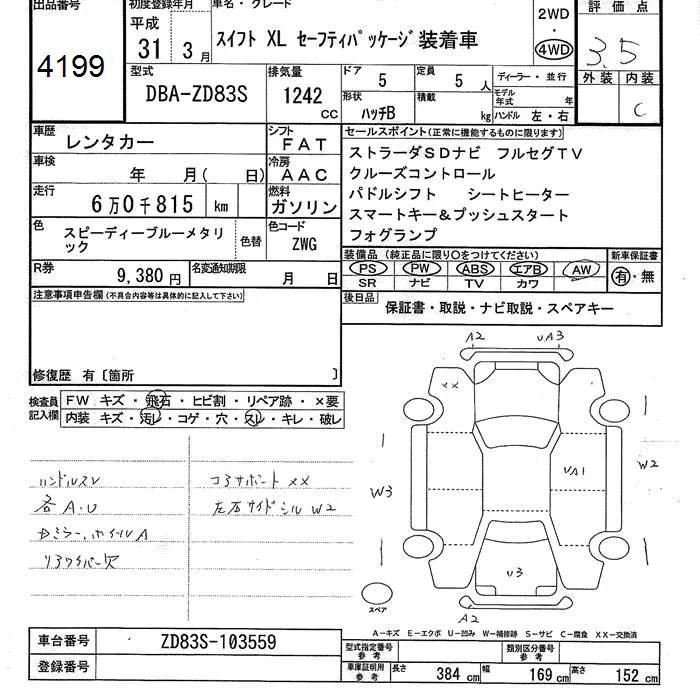 出品番号 初度登録年月 車名・グレード 評価点
4199 平成 31 3月 スイフト XL セーフティパッケージ装着車 2WD 4WD 3.5
外装 内装
C
型式 排気量 ドア 定員 ディーラー・並行
DBA-ZD83S 1242 cc 5 5 人 モデル年式 年
形状 積載 kg ハンドル 左・右
ハッチB
車歴 レンタカー シフト FAT セールスポイント(正常に機能するものに限ります)
車検 年 月( 日) 冷房 AAC ストラーダSDナビ フルセグTV
クルーズコントロール
走行 6万0千815 km 燃料 ガソリン パドルシフト シートヒーター
スマートキー&プッシュスタート
フォグランプ
色 スピーディーブルーメタリック 色替 色コード ZWG
装備品(純正品に限り○をつけてください) 新車保証書
PS PW ABS エアB AW 有・無
SR ナビ TV カワ
R券 9,380円 名変通知期限 月 日
後日品 保証書・取説・ナビ取説・スペアキー
注意事項申告欄(不具合内容等は具体的に記入して下さい)
修復歴 有〔箇所
検査員記入欄 FW キズ・飛石・ヒビ割・リペア跡・×要
内装 キズ・汚レ・コゲ・穴・スレ・キレ・破レ
ハンドルスレ コアサポート XX
各A・U 左右サイドシル W2
ドミラー、ホイルA
リアワイパー欠
A2 UA3
XX
W3 UA1 W2
U3
スペア A2
A-キズ E-エクボ U-凹み W-補修跡 S-サビ C-腐食 XX-交換済
車台番号 ZD83S-103559 型式指定番号 参考 類別区分番号 参考
登録番号 車庫証明用 参考 長さ 384 cm 幅 169 cm 高さ 152 cm